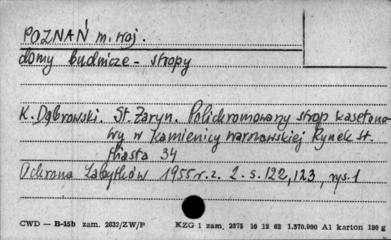 POZNAŃ m. woj.
domy budnicze - stropy
K. Dąbrowski. St. Żaryn. Polichromowany strop kasetono-
wy w kamienicy warszawskiej Rynek St.
Miasta 34
Ochrona Zabytków 1955 r. z. 2. s. 122, 123, rys. 1
CWD — B-15b zam. 2632/ZW/P KZG 1 zam. 2375 10 12 62 1.570.000 A1 karton 180 g